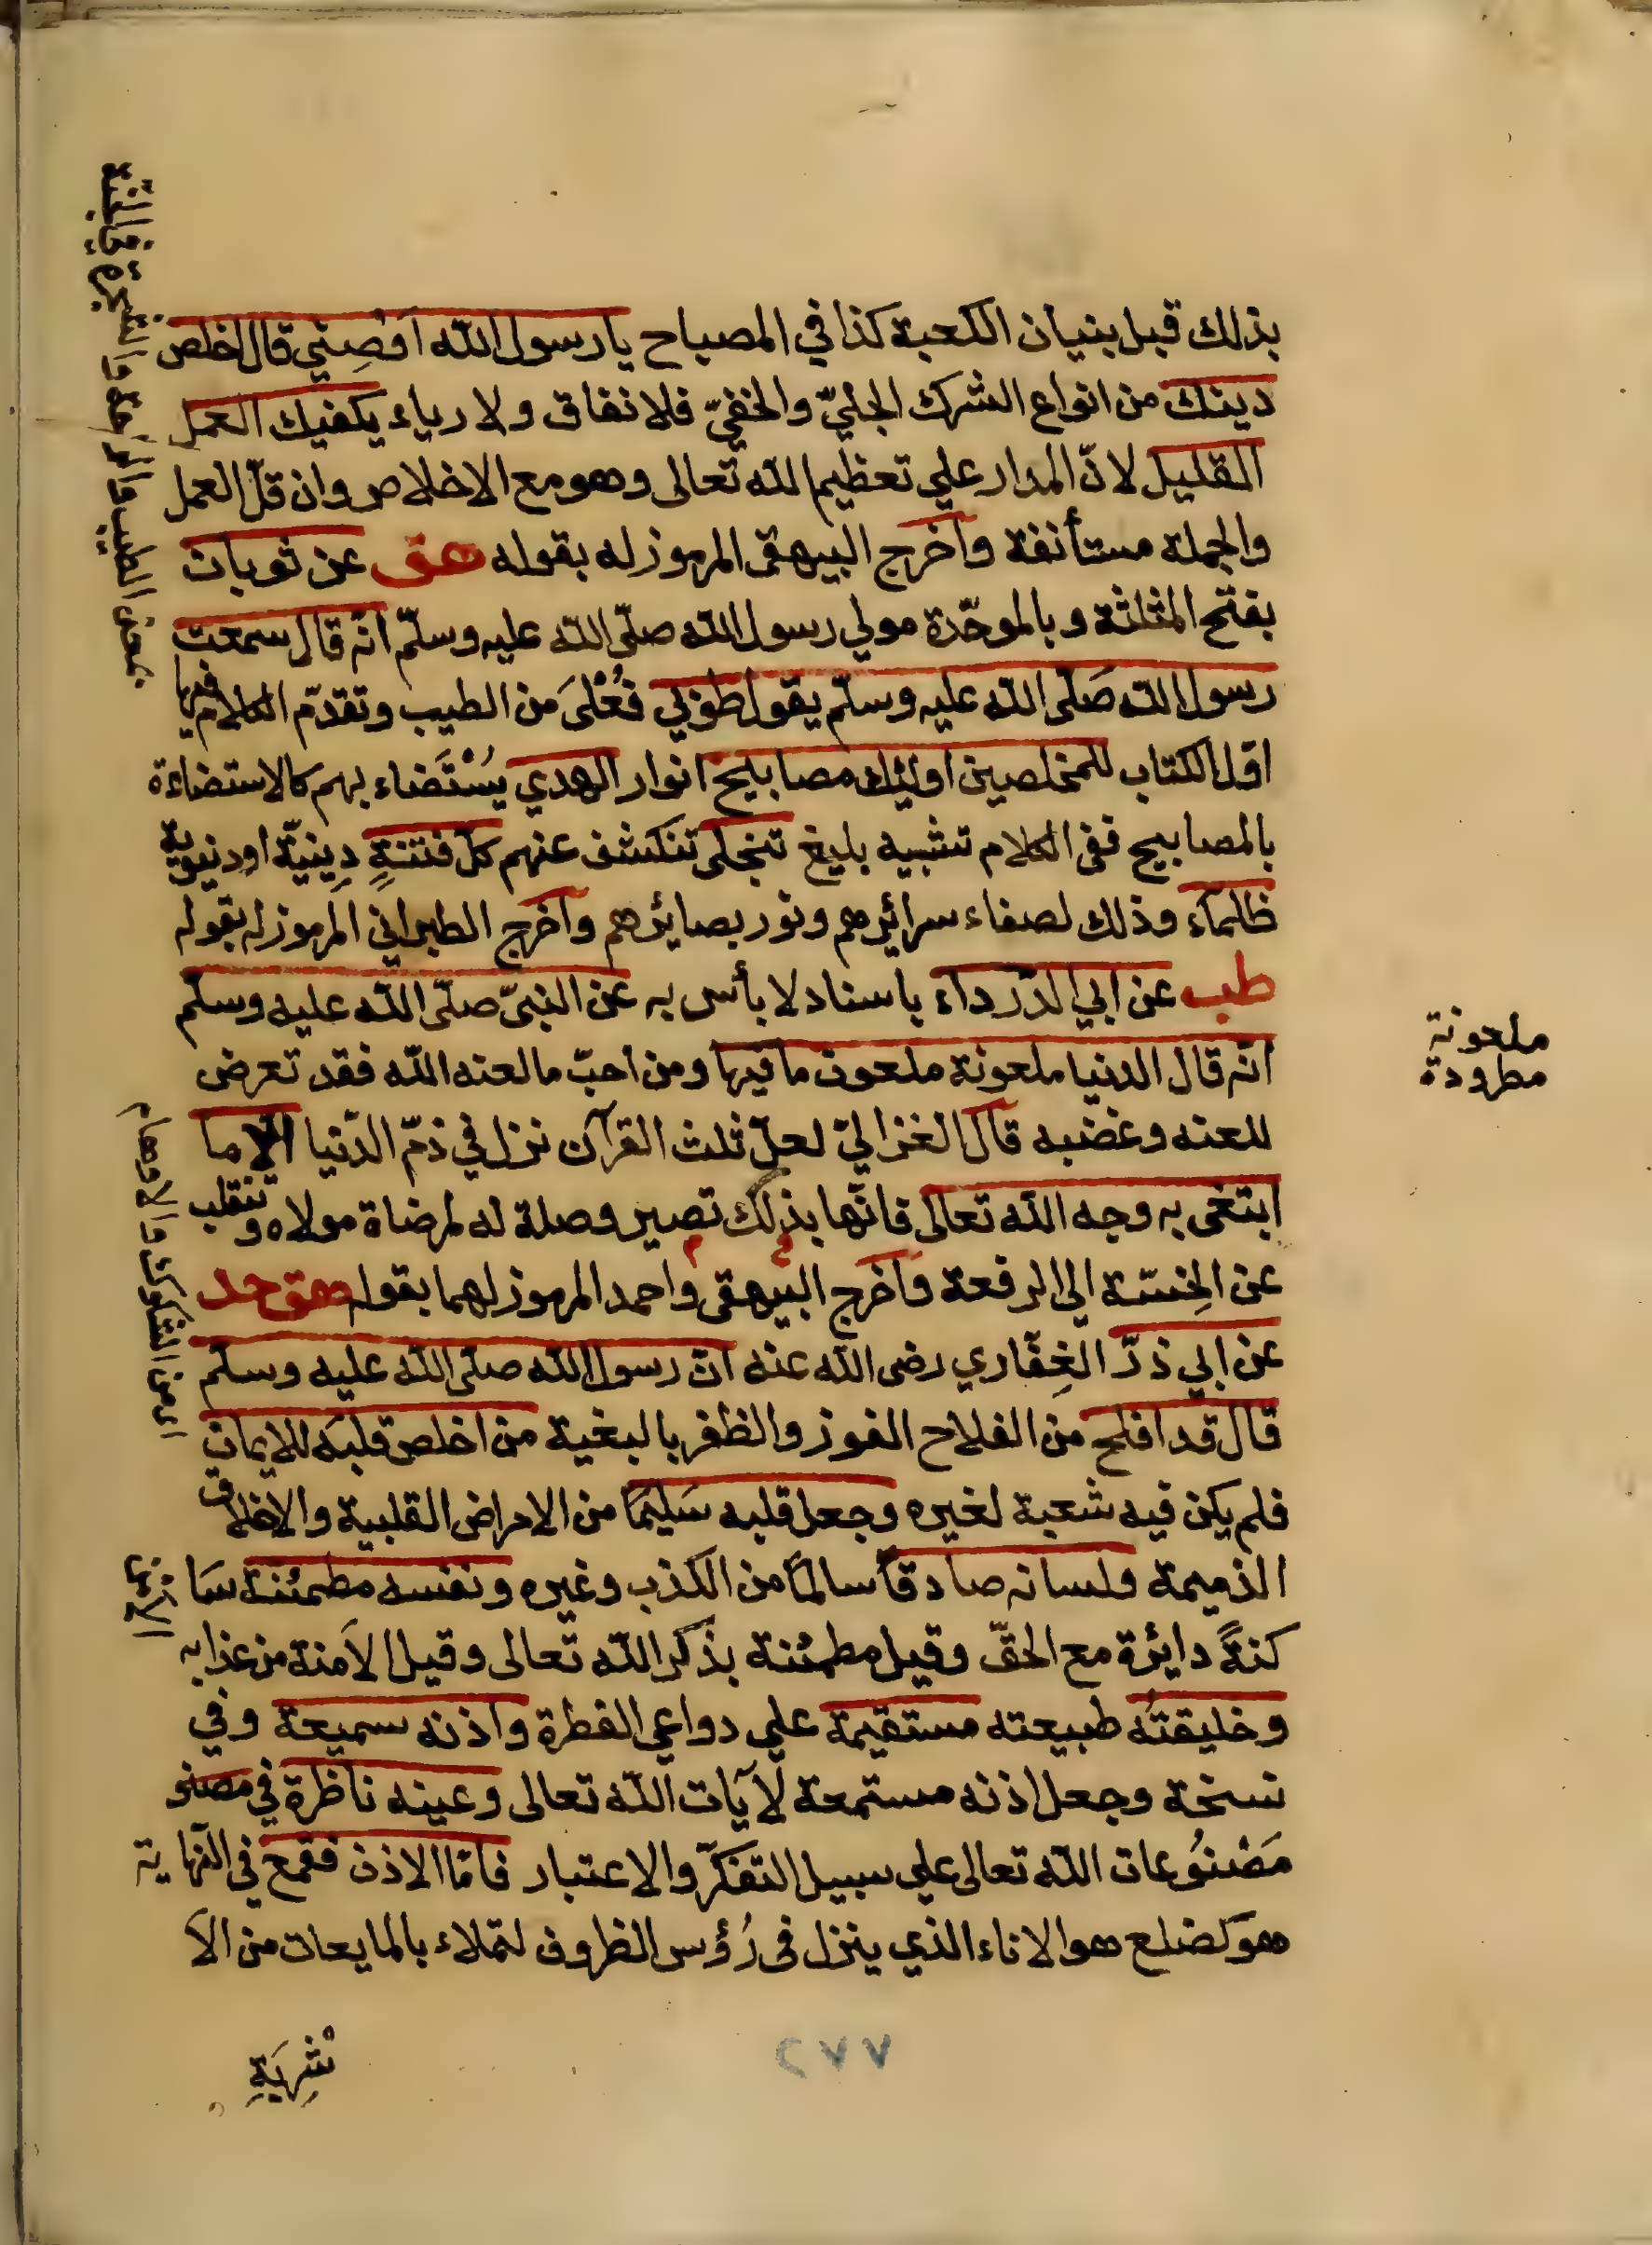 بذلك قبل بنيان الكعبة كذا في المصباح يا رسول الله اَوْصِنِي قال اخلص
دينك من انواع الشرك الجليّ والخفيّ فلا نفاق ولا رياء يكفيك العمل
القليل لانّ المدار علي تعظيم الله تعالى وهو مع الاخلاص وان قلّ العمل
والجملة مستأنفة واخرج البيهقى المرموز له بقوله هق عن ثوبان
بفتح المثلثة وبالموحّدة مولي رسول الله صلّى الله عليه وسلّم انّه قال سمعت
رسول الله صَلّى الله عليه وسلّم يقول طوبي فُعْلَى من الطيب وتقدّم الكلام فيها
اوّل الكتاب للمخلصين اوليك مصابيح انوار الهدي يُسْتَضاء بهم كالاستضاءة
بالمصابيح ففى الكلام تشبيه بليغ تنجلى تنكشف عنهم كلّ فتنةٍ دِينِيّة اودنيوية
ظلماء وذلك لصفاء سرائيرهم ونور بصايئرهم واخرج الطبراني المرموز له بقوله
طب عن ابي الدّرداء باسناد لا بأس به عن النبىّ صلّى الله عليه وسلّم
انّه قال الدنيا ملعونة ملعون ما فيها ومن احبّ ما لعنه الله فقد تعرض
للعنه وغضبه قال الغزاليّ لعلّ ثلث القرآن نزل في ذمّ الدّنيا الا ما
ابتغى به وجه الله تعالى فانّها بذلك تصير وصلة له لمرضاة مولاه وتنقلب
عن الخِسّة الي الرفعة واخرج البيهقى واحمد المرموز لهما بقوله هق حد
عن ابي ذرّ الغِفّاري رضى الله عنه انّ رسول الله صلّى الله عليه وسلّم
قال قد افلح من الفلاح الفوز والظفر بالبغية من اخلص قلبَه للايمان
فلم يكن فيه شعبة لغيره وجعل قلبه سَليمًا من الامراض القلبية والاخلاق
الذميمة ولسانه صادقاً سالماً من الكذب وغيره ونفسه مطمئنة سَا
كنةً دايئرة مع الحقّ وقيل مطمئنة بذكر الله تعالى وقيل الآمنة من عذابه
وخليقتُه طبيعته مستقيمة علي دواعي الفطرة واذنه سميعة وفي
نسخة وجعل اذنه مستمعة لآيات الله تعالى وعينه ناظرة في مصنو
مَصْنُوعات الله تعالى علي سبيل التفكّر والاعتبار فامّا الاذن فقمع في النّهاية
هو كضلع هو الاناء الذي ينزل فى رُؤس الظروف لتملاء بالمايعات من الا
شْرِبَةِ
ملعونة
مطرودة
٢٧٧